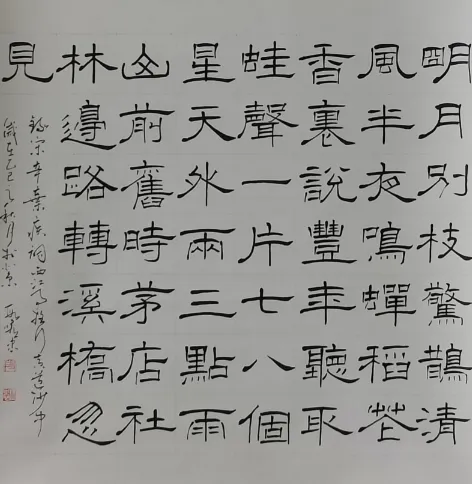 明月別枝驚鵲清
風半夜鳴蟬稻花
香裏說豐年聽取
蛙聲一片七八個
星天外兩三點雨
山前舊時茅店社
林邊路轉溪橋忽
見
錄宋辛棄疾詞西江月夜行黃道沙中
歲在乙巳秋月於京